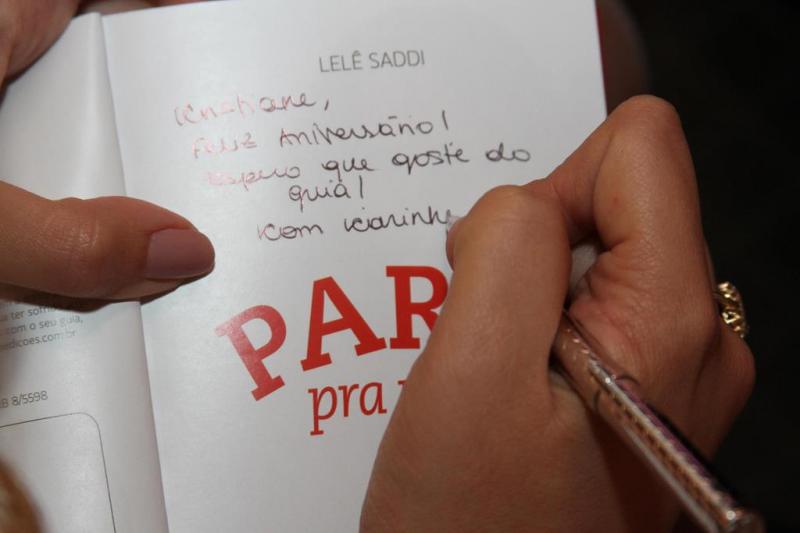 LELÊ SADDI
Cristiane,
Feliz Aniversário!
espero que goste do
guia!
Com carinh
PAR
pra
ter
com o seu guia,
edicoes.com.br
B 8/5598